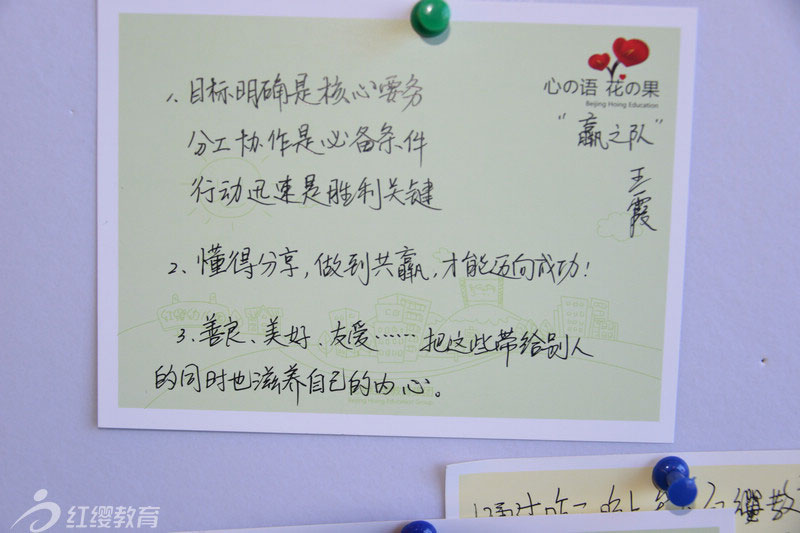 心の语 花の果
Beijing Hoing Education
"赢之队"
王霞
1、目标明确是核心要务
分工协作是必备条件
行动迅速是胜利关键
2、懂得分享，做到共赢，才能迈向成功！
3、善良、美好、友爱……把这些带给别人
的同时也滋养自己的内心。
Beijing Hoing Education Group
红缨教育